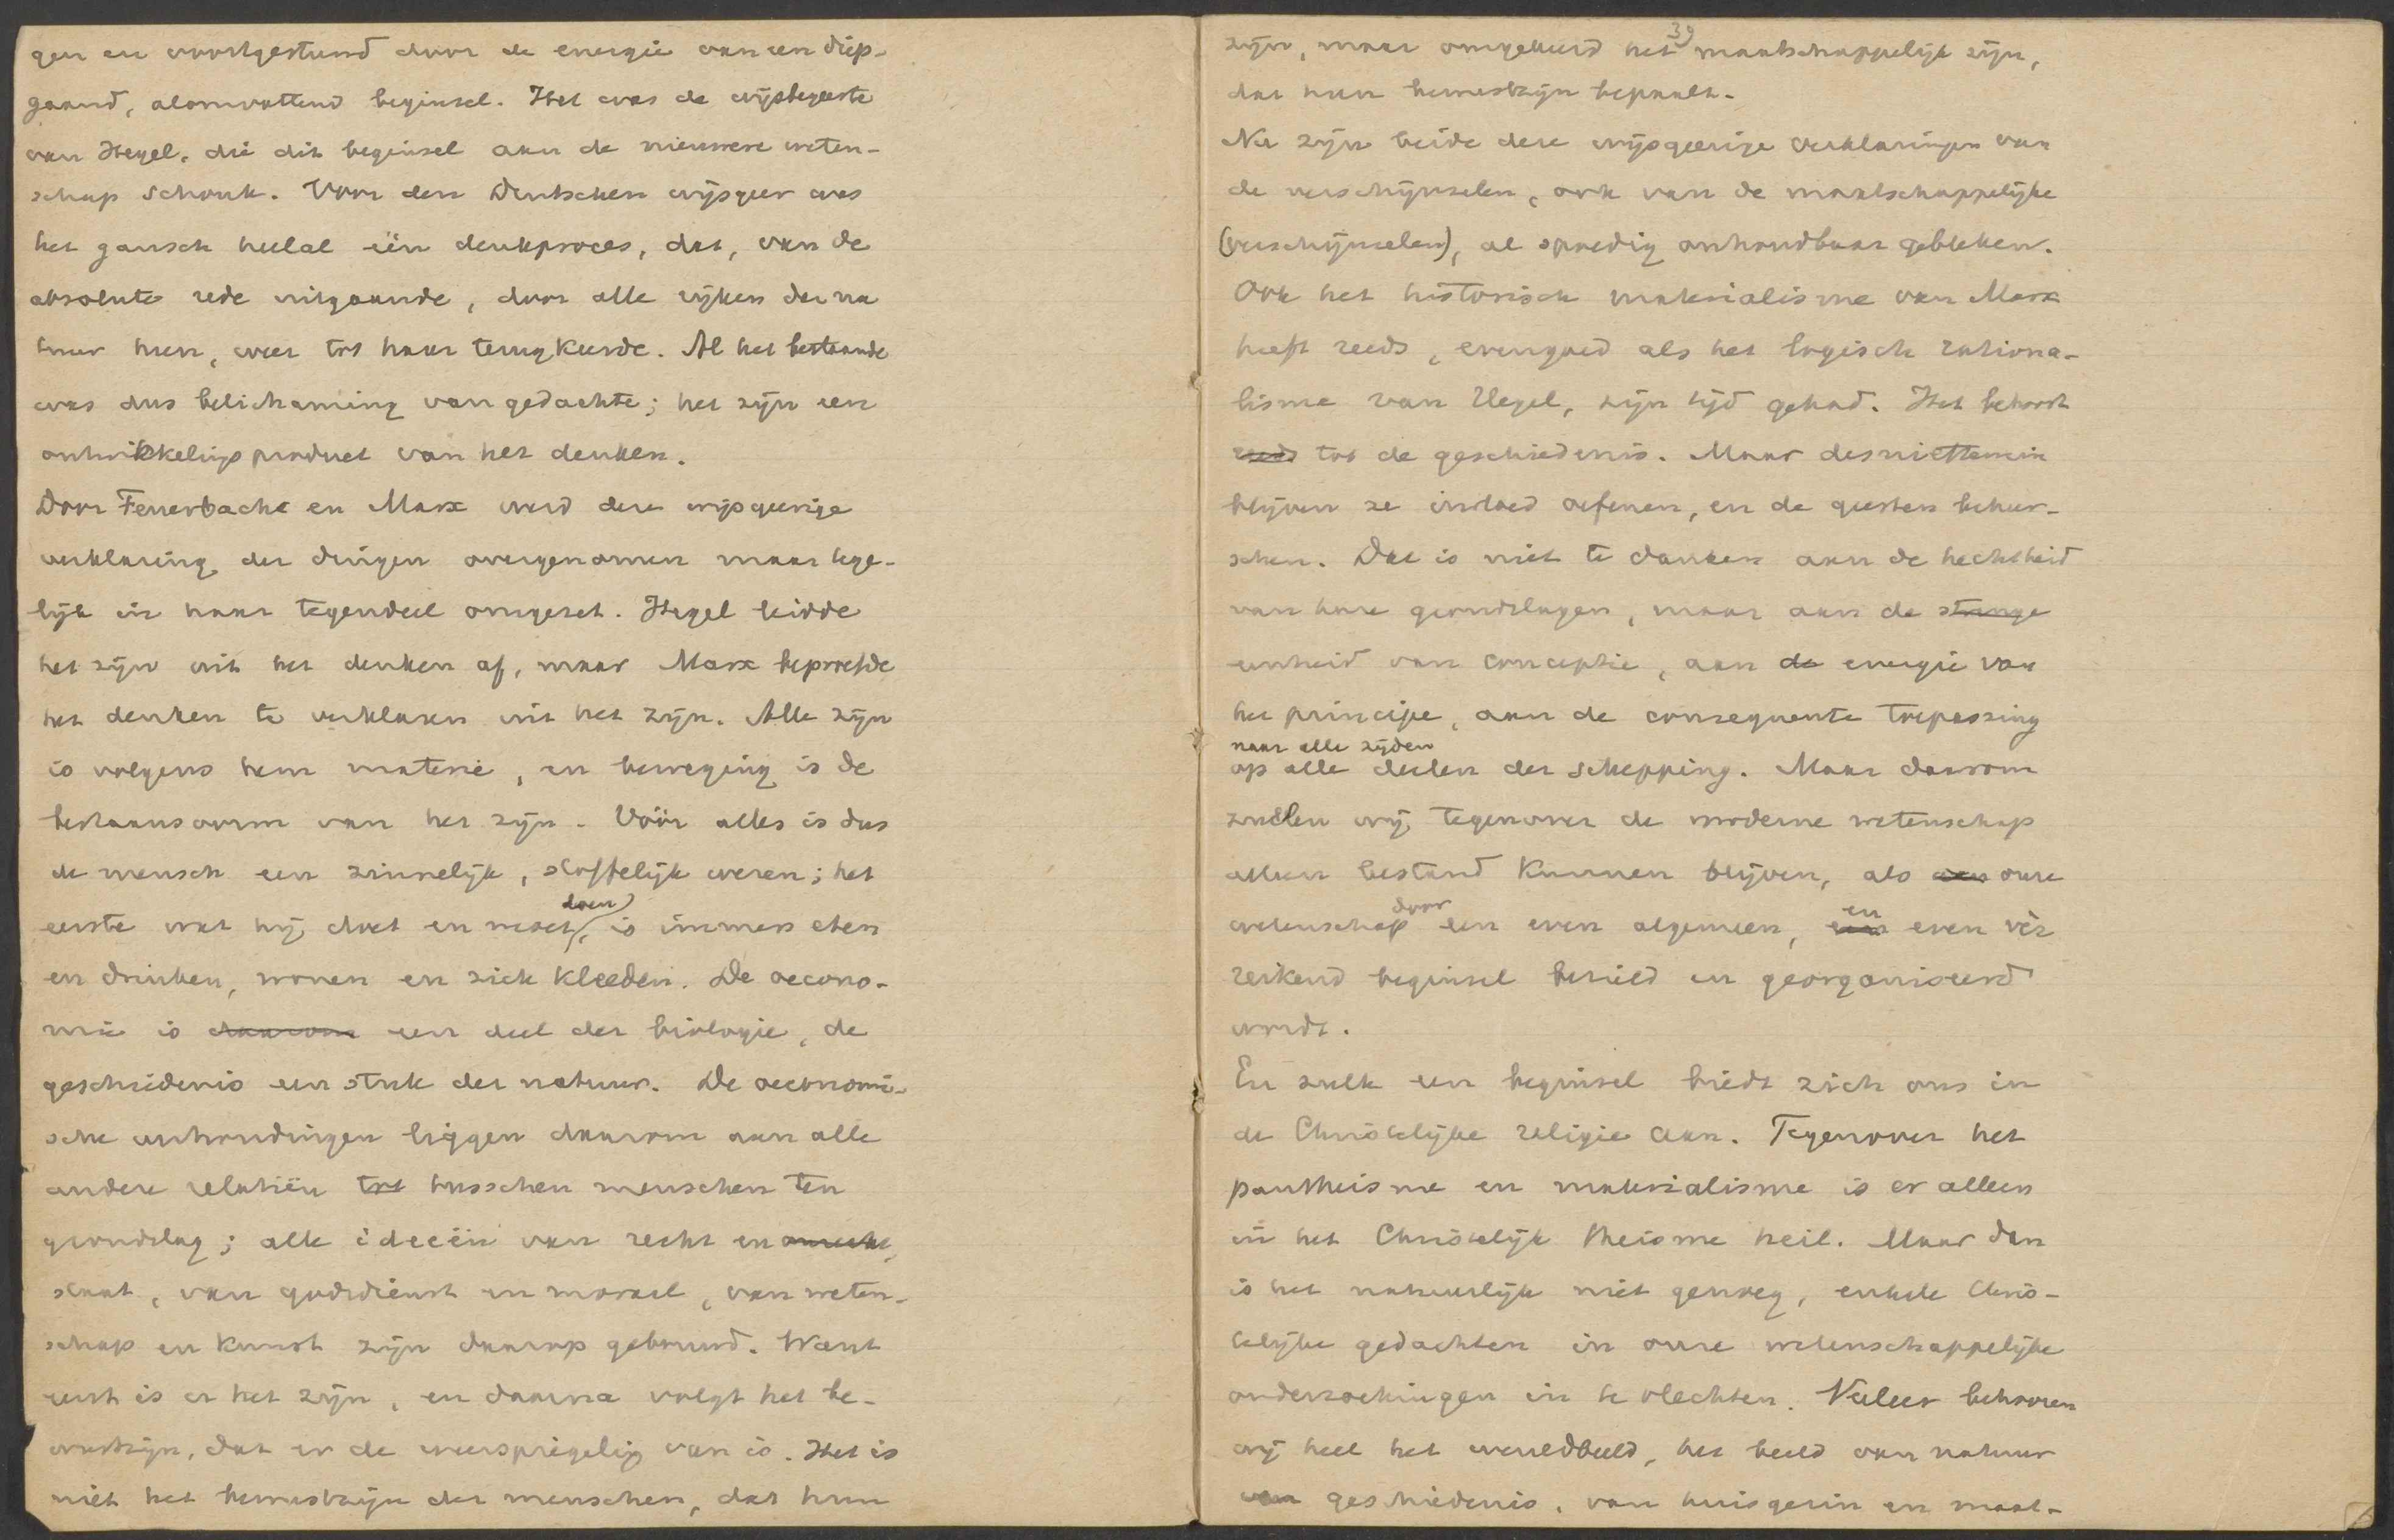 gen en voortgestuwd door de energie van een diep-
gaand, alomvattend beginsel. Het was de wijsbegeerte
van Hegel, die dit beginsel aan de nieuwere weten-
schap schonk. Voor den Duitschen wijsgeer was
het gansch heelal één denkproces, dat, van de
absolute rede uitgaande, door alle rijken der na
tuur heen, weer tot haar terugkeerde. Al het bestaande
was dus belichaming van gedachte; het zijn een
ontwikkelings product van het denken.
Door Feuerbach en Marx werd deze wijsgeerige
verklaring der dingen overgenomen maar tege-
lijk in haar tegendeel omgezet. Hegel leidde
het zijn uit het denken af, maar Marx beproefde
het denken te verklaren uit het zijn. Alle zijn
is volgens hem materie, en beweging is de
bestaansvorm van het zijn. Vóór alles is dus
de mensch een zinnelijk, stoffelijk wezen; het
eerste wat hij doet en moet doen, is immers eten
en drinken, wonen en zich kleeden. De oecono-
mie is daarom een deel der biologie, de
geschiedenis een stuk der natuur. De oeconomi-
sche verhoudingen liggen daarom aan alle
andere relatiën tot tusschen menschen ten
grondslag; alle ideeën van recht en
staat, van godsdienst en moraal, van weten-
schap en kunst zijn daarop gebouwd. Want
eerst is er het zijn, en daarna volgt het be-
wustzijn, dat er de weerspiegeling van is. Het is
niet het bewustzijn der menschen, dat hun
39
zijn, maar omgekeerd het maatschappelijk zijn,
dat hun bewustzijn bepaalt.
Nu zijn beide deze wijsgeerige verklaringen van
de verschijnselen, ook van de maatschappelijke
(verschijnselen), al spoedig onhoudbaar gebleken.
Ook het historisch materialisme van Marx
heeft reeds, evengoed als het logisch rationa-
lisme van Hegel, zijn tijd gehad. Het behoort
reeds tot de geschiedenis. Maar desniettemin
blijven ze invloed oefenen, en de geesten beheer-
schen. Dat is niet te danken aan de hechtheid
van hare grondslagen, maar aan de strenge
eenheid van conceptie, aan de energie van
het principe, aan de consequente toepassing
naar alle zijden
op alle deelen der schepping. Maar daarom
zullen wij tegenover de moderne wetenschap
alleen bestand kunnen blijven, als onze
wetenschap door een even algemeen, en even vèr
reikend beginsel bezield en georganiseerd
wordt.
En zulk een beginsel biedt zich ons in
de Christelijke religie aan. Tegenover het
pantheisme en materialisme is er alleen
in het Christelijk theisme heil. Maar dan
is het natuurlijk niet genoeg, enkele Chris-
telijke gedachten in onze wetenschappelijke
onderzoekingen in te vlechten. Veeleer behooren
wij heel het wereldbeeld, het beeld van natuur
geschiedenis, van huisgezin en maat-